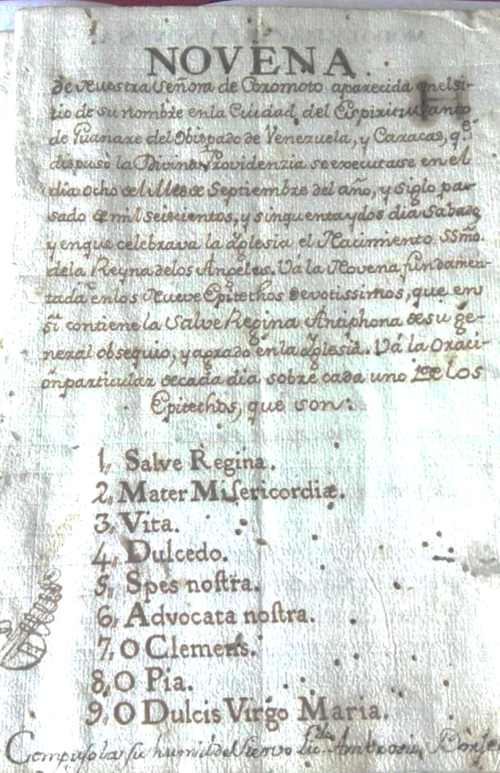 NOVENA.
de Nuestra Señora de Coromoto aparecida en el si-
tio de su nombre en la Ciudad del Espiritu Santo
de Guanare del Obispado de Venezuela, y Caracas, q.^e
dispuso la Divina Providenzia se executasse en el
dia ocho de el Mes de Septiembre del año, y siglo pas-
sado de mil seiscientos, y sinquenta y dos dia Sabado
y en que celebrava la Iglesia el Nacimiento SSmo.
de la Reyna de los Angeles. Vá la Novena fundamen-
tada en los Nueve Epitechos devotissimos, que en
sí contiene la Salve Regina Antiphona de su ge-
neral obsequio, y agrado en la Iglesia. Vá la Oraci-
on particular de cada dia sobre cada uno de los
Epitechos, que son:
1, Salve Regina.
2, Mater Misericordiæ.
3, Vita.
4, Dulcedo.
5, Spes nostra.
6, Advocata nostra.
7, O Clemens.
8, O Pia.
9, O Dulcis Virgo Maria.
Compusola su humilde Siervo Lic.^do Ambrosio